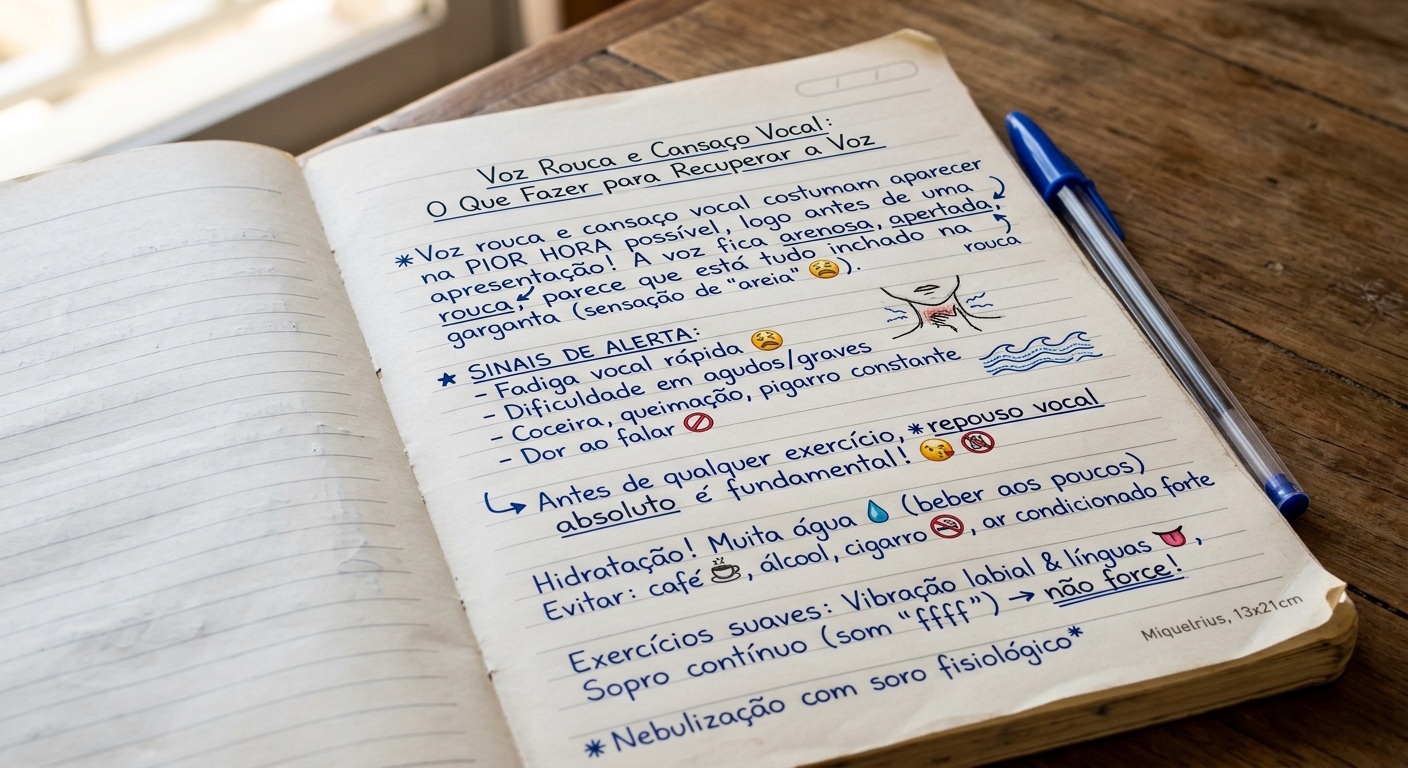 Voz Rouca e Cansaço Vocal:
O Que Fazer para Recuperar a Voz
*Voz rouca e cansaço vocal costumam aparecer
na PIOR HORA possível, logo antes de uma
apresentação! A voz fica arenosa, apertada,
rouca
rouca, parece que está tudo inchado na
garganta (sensação de "areia" 😫).
★ SINAIS DE ALERTA:
- Fadiga vocal rápida 😫
- Dificuldade em agudos/graves
- Coceira, queimação, pigarro constante
- Dor ao falar 🚫
↳ Antes de qualquer exercício, *repouso vocal
absoluto é fundamental!
Hidratação! Muita água 💧 (beber aos poucos)
Evitar: café ☕, álcool, cigarro 🚭, ar condicionado forte
Exercícios suaves: Vibração labial & línguas 👅,
Sopro contínuo (som "ffff") → não force!
*Nebulização com soro fisiológico*
Miquelrius, 13x21cm